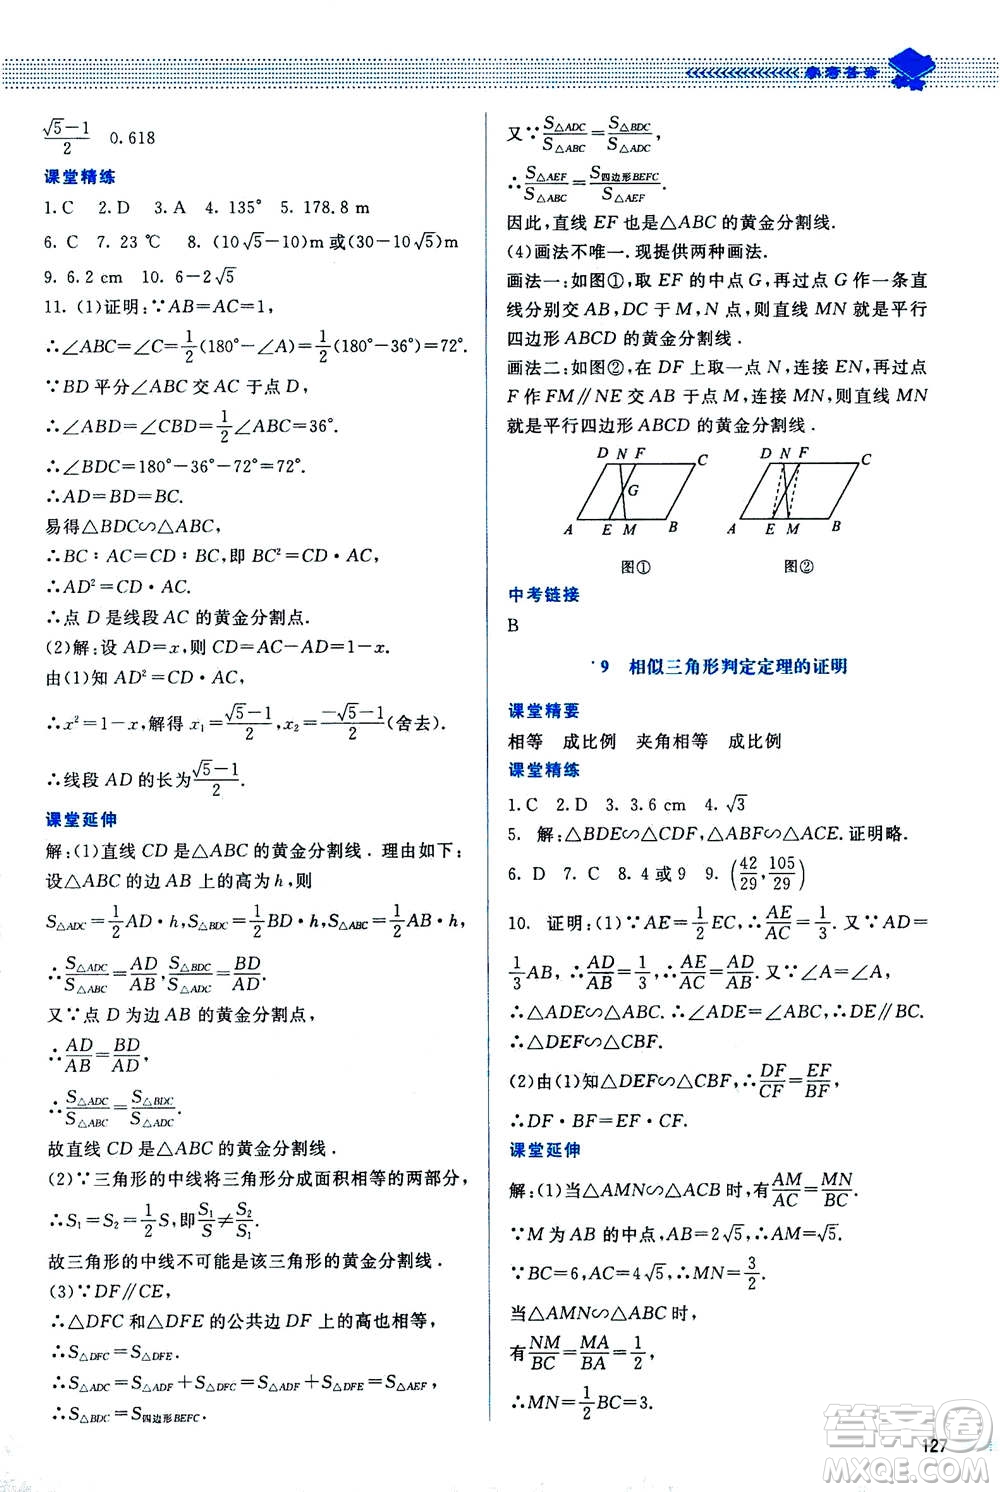 参考答案
(√5−1)/2 0.618
课堂精练
1. C 2. D 3. A 4. 135° 5. 178.8 m
6. C 7. 23 ℃ 8. (10√5−10)m或(30−10√5)m
9. 6.2 cm 10. 6−2√5
11. (1)证明:∵AB=AC=1,
∴∠ABC=∠C=1/2(180°−∠A)=1/2(180°−36°)=72°.
∵BD平分∠ABC交AC于点D,
∴∠ABD=∠CBD=1/2∠ABC=36°.
∴∠BDC=180°−36°−72°=72°.
∴AD=BD=BC.
易得△BDC∽△ABC,
∴BC∶AC=CD∶BC,即BC²=CD·AC.
∴AD²=CD·AC.
∴点D是线段AC的黄金分割点.
(2)解:设AD=x,则CD=AC−AD=1−x.
由(1)知AD²=CD·AC,
∴x²=1−x,解得x₁=(√5−1)/2,x₂=(−√5−1)/2(舍去).
∴线段AD的长为(√5−1)/2.
课堂延伸
解:(1)直线CD是△ABC的黄金分割线.理由如下:
设△ABC的边AB上的高为h,则
S△ADC=1/2AD·h,S△BDC=1/2BD·h,S△ABC=1/2AB·h,
∴S△ADC/S△ABC=AD/AB,S△BDC/S△ADC=BD/AD.
又∵点D为边AB的黄金分割点,
∴AD/AB=BD/AD,
∴S△ADC/S△ABC=S△BDC/S△ADC.
故直线CD是△ABC的黄金分割线.
(2)∵三角形的中线将三角形分成面积相等的两部分,
∴S₁=S₂=1/2S,即S₁/S≠S₂/S₁.
故三角形的中线不可能是该三角形的黄金分割线.
(3)∵DF∥CE,
∴△DFC和△DFE的公共边DF上的高也相等,
∴S△DFC=S△DFE.
∴S△ADC=S△ADF+S△DFC=S△ADF+S△DFE=S△AEF,
∴S△BDC=S四边形BEFC.
又∵S△ADC/S△ABC=S△BDC/S△ADC,
∴S△AEF/S△ABC=S四边形BEFC/S△AEF.
因此,直线EF也是△ABC的黄金分割线.
(4)画法不唯一.现提供两种画法.
画法一:如图①,取EF的中点G,再过点G作一条直
线分别交AB,DC于M,N点,则直线MN就是平行
四边形ABCD的黄金分割线.
画法二:如图②,在DF上取一点N,连接EN,再过点
F作FM∥NE交AB于点M,连接MN,则直线MN
就是平行四边形ABCD的黄金分割线.
D N F C
G
A E M B
图①
D N F C
A E M B
图②
中考链接
B
9 相似三角形判定定理的证明
课堂精要
相等 成比例 夹角相等 成比例
课堂精练
1. C 2. D 3. 3.6 cm 4. √3
5. 解:△BDE∽△CDF,△ABF∽△ACE.证明略.
6. D 7. C 8. 4或9 9. (42/29,105/29)
10. 证明:(1)∵AE=1/2EC,∴AE/AC=1/3.又∵AD=
1/3AB,∴AD/AB=1/3,∴AE/AC=AD/AB.又∵∠A=∠A,
∴△ADE∽△ABC,∴∠ADE=∠ABC,∴DE∥BC.
∴△DEF∽△CBF.
(2)由(1)知△DEF∽△CBF,∴DF/CF=EF/BF,
∴DF·BF=EF·CF.
课堂延伸
解:(1)当△AMN∽△ACB时,有AM/AC=MN/BC.
∵M为AB的中点,AB=2√5,∴AM=√5.
∵BC=6,AC=4√5,∴MN=3/2.
当△AMN∽△ABC时,
有NM/BC=MA/BA=1/2,
∴MN=1/2BC=3.
答案圈
MXQE.COM
127